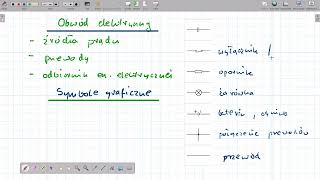 Obwód elektryczny
- źródła prądu
- przewody
- odbiornik en. elektrycznej
Symbole graficzne
wyłącznik
opornik
żarówka
bateria, ogniwo
połączenie przewodów
przewód